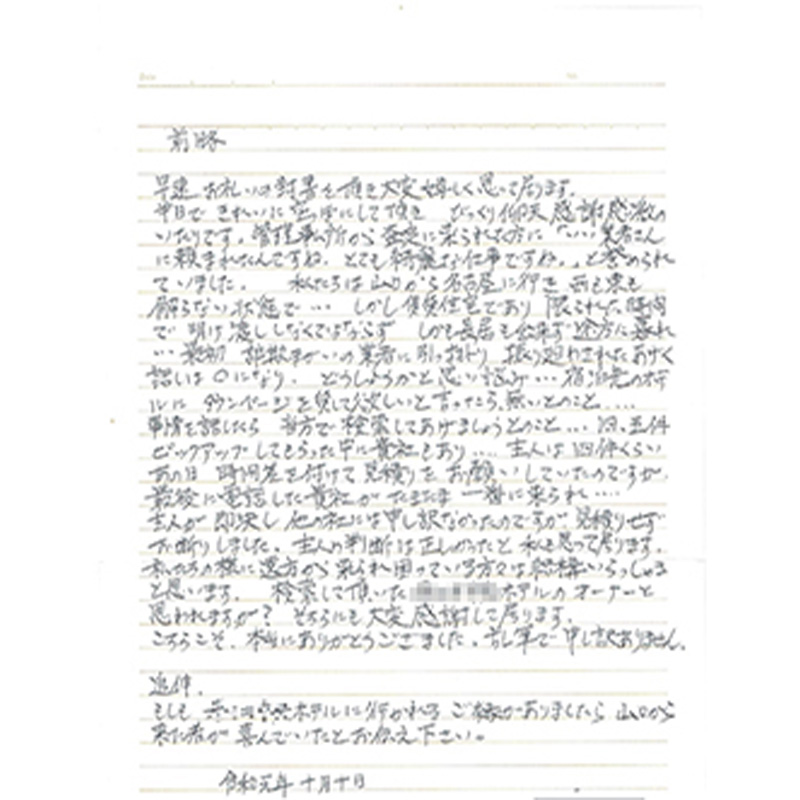 前略
早速 お礼の封書を頂き大変嬉しく思って居ります。
半日で きれいに空っぽにして頂き びっくり仰天感謝感激の
いたりです。管理事ム所から査定に来られた方に「いい業者さん
に頼まれたんですね。とても綺麗な仕事ですね。」と誉められ
ていました。 私たちは山口から名古屋に行き 右も左も
解らない状態で… しかし賃貸住宅であり 限られた時間
で 明け渡ししなくてはならず しかも長居も出来ず途方に暮れ
…最初 詐欺まがいの業者に引っ掛り 振り廻わされたあげく
話しは0になり、どうしようかと思い悩み…宿泊先のホテ
ルに タウンページを貸して欲しいと言ったら、無いとのこと….
事情を話したら 当方で検索してあげましょうとのこと…四、五件
ピックアップしてもらった中に貴社もあり…. 主人は四件くらい
あの日 時間差を付けて見積りを お願いしていたのですが、
最後に電話した貴社が たまたま 一番に来られ….
主人が即決し 他の社には申し訳なかったのですが見積りせず
お断りしました。主人の判断は正しかったと 私も思って居ります。
私たちの様に遠方から来られ困っている方々は結構いらっしゃる
と思います。 検索して頂いた ホテルの オーナーと
思われますが? そちらにも大変感謝して居ります。
こちらこそ、本当にありがとうございました。乱筆で申し訳ありません。
追伸、
もしも ホテルに行かれる ご縁がありましたら 山口から
来た者が 喜んでいたとお伝え下さい。
令和元年 十月十日